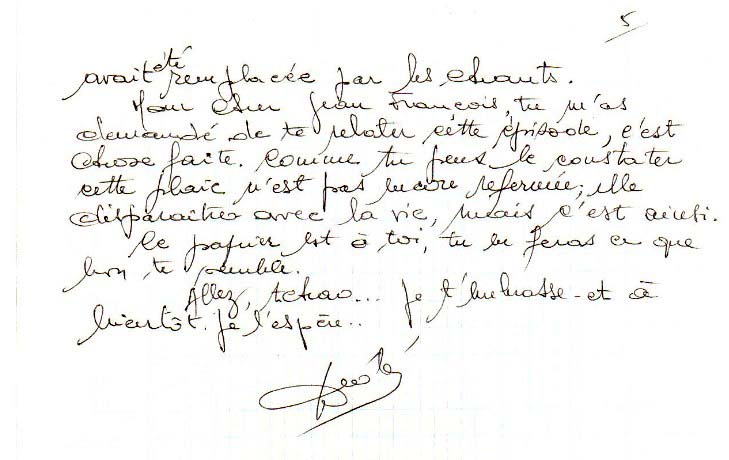 5
avait été remplacée par les chants.
Mon cher Jean François, tu m'as
demandé de te relater cette épisode, c'est
chose faite. Comme tu peux le constater
cette plaie n'est pas encore refermée; elle
disparaitra avec la vie, mais c'est ainsi.
Ce papier est à toi, tu en feras ce que
bon te semble.
Allez, tchao... je t'embrasse - et à
bientôt. Je l'espère..